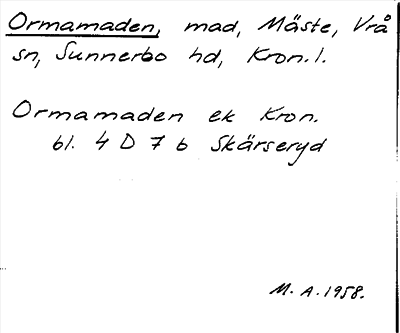 Ormamaden, mad, Mäste, Vrå
sn, Sunnerbo hd, Kron. l.
Ormamaden ek Kron.
bl. 4 D 7 b Skärseryd
M. A. 1958.